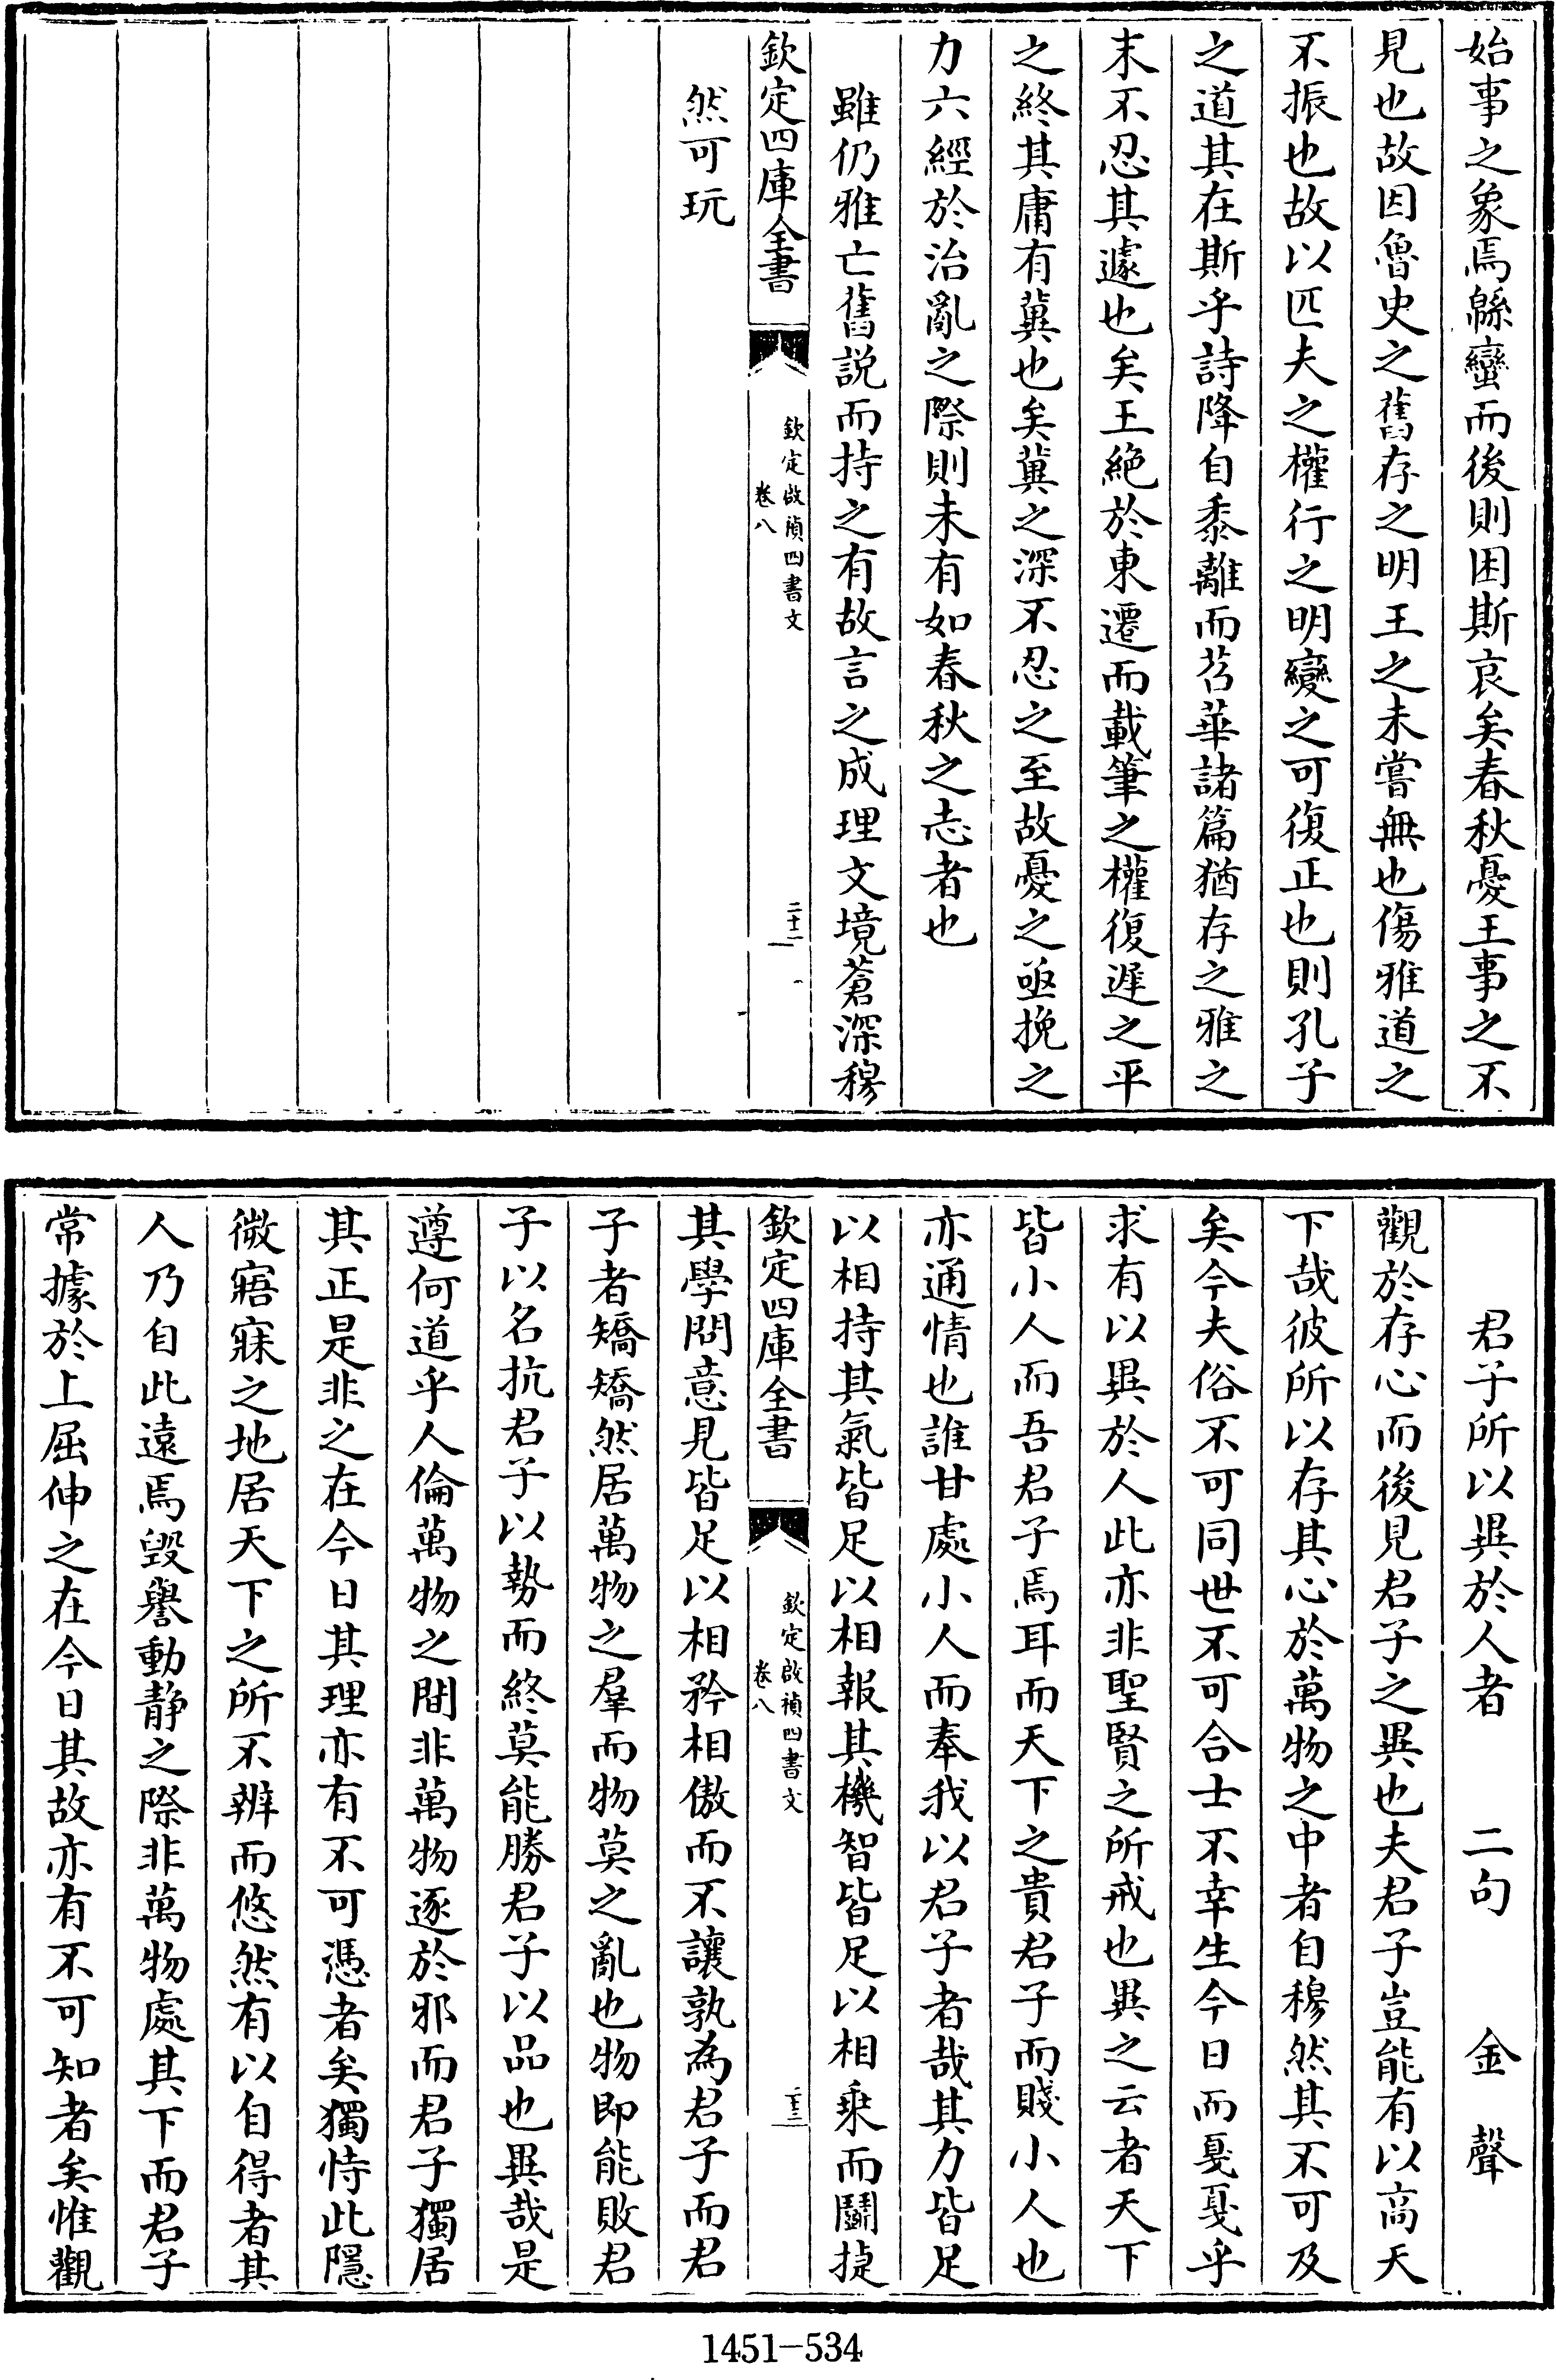 始事之象焉緜蠻而後則困斯哀矣春秋憂王事之不
見也故因魯史之舊存之明王之未嘗無也傷雅道之
不振也故以匹夫之權行之明變之可復正也則孔子
之道其在斯乎詩降自黍離而苕華諸篇猶存之雅之
末不忍其遽也矣王絶於東遷而載筆之權復遲之平
之終其庸有冀也矣冀之深不忍之至故憂之亟挽之
力六經於治亂之際則未有如春秋之志者也
雖仍雅亡舊説而持之有故言之成理文境蒼深穆
欽定四庫全書
欽定啟禎四書文
卷八
二十二
然可玩
君子所以異於人者 二句 金聲
觀於存心而後見君子之異也夫君子豈能有以高天
下哉彼所以存其心於萬物之中者自穆然其不可及
矣今夫俗不可同世不可合士不幸生今日而戛戛乎
求有以異於人此亦非聖賢之所戒也異之云者天下
皆小人而吾君子焉耳而天下之貴君子而賤小人也
亦通情也誰甘處小人而奉我以君子者哉其力皆足
以相持其氣皆足以相報其機智皆足以相乘而鬭捷
欽定四庫全書
欽定啟禎四書文
卷八
二十三
其學問意見皆足以相矜相傲而不讓孰為君子而君
子者矯矯然居萬物之羣而物莫之亂也物即能敗君
子以名抗君子以勢而終莫能勝君子以品也異哉是
遵何道乎人倫萬物之間非萬物逐於邪而君子獨居
其正是非之在今日其理亦有不可憑者矣獨恃此隱
微寤寐之地居天下之所不辨而悠然有以自得者其
人乃自此遠焉毀譽動靜之際非萬物處其下而君子
常據於上屈伸之在今日其故亦有不可知者矣惟觀
1451-534